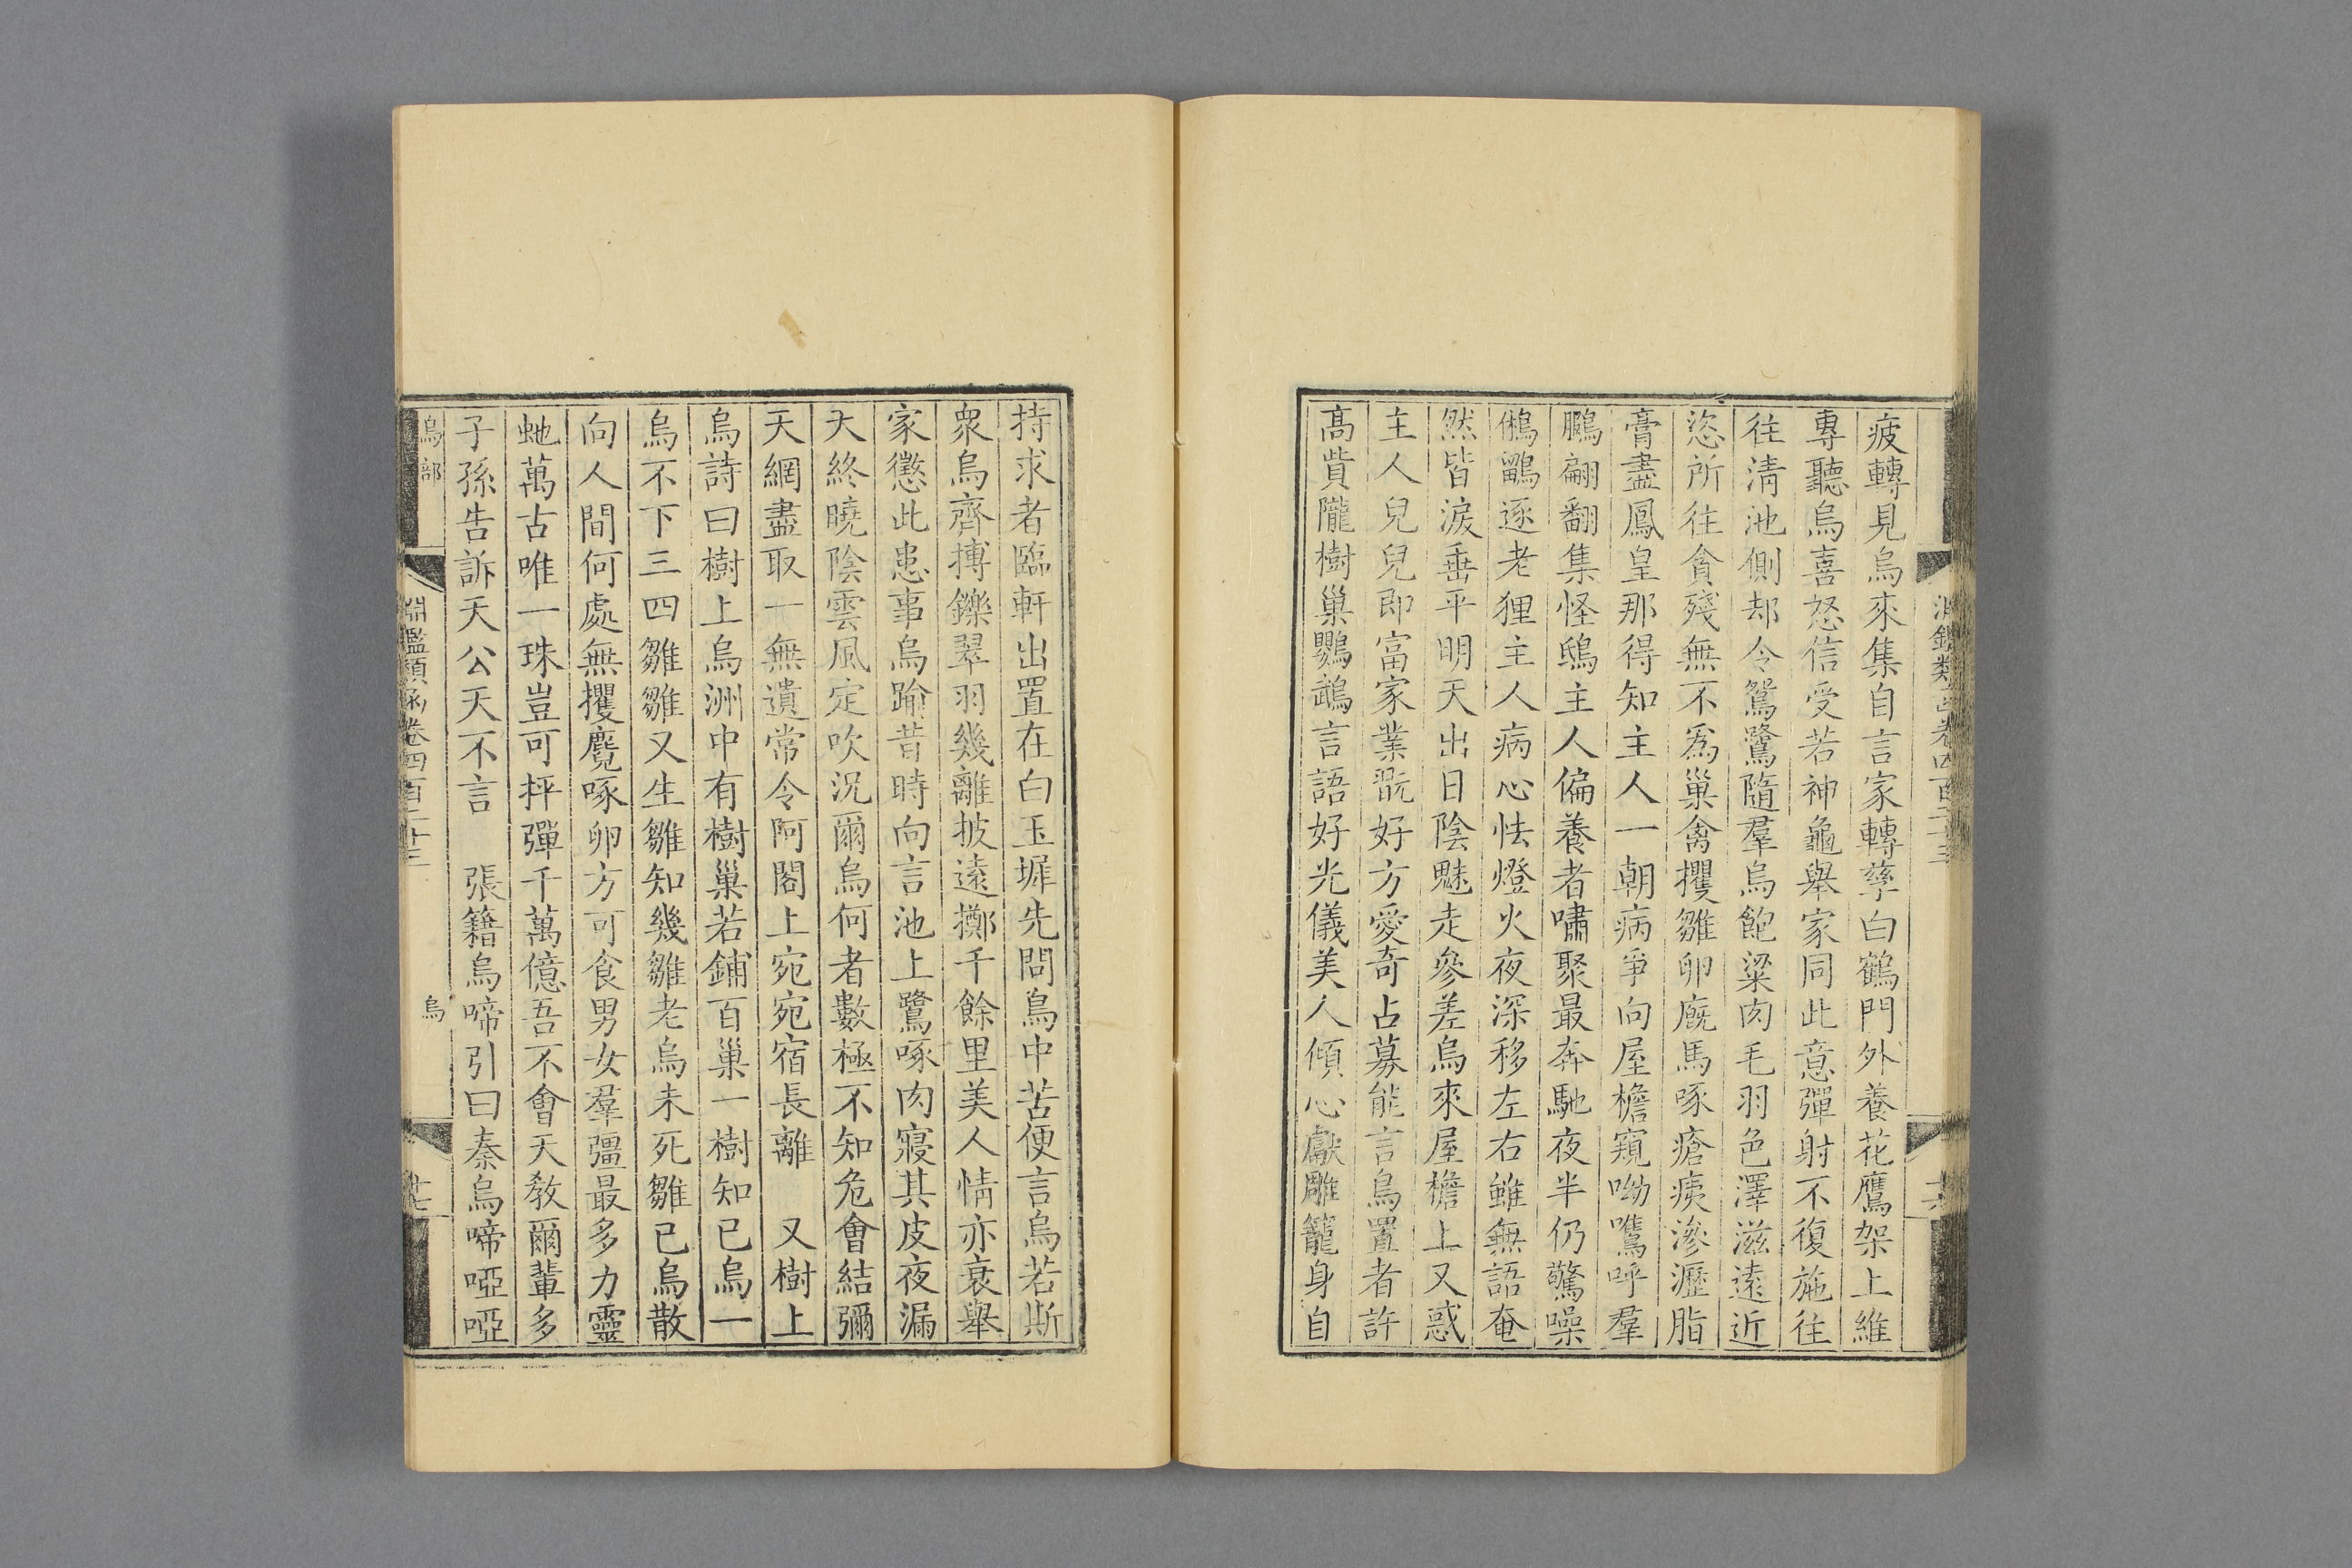 疲轉見烏來集自言家轉孳白鶴門外養花鷹架上維
專聽烏喜怒信受若神龜舉家同此意彈射不復施往
往清池側却令鴛鷺隨羣烏飽粱肉毛羽色澤滋遠近
恣所往貪殘無不爲巢禽攫雛卵廐馬啄瘡痍滲瀝脂
膏盡鳳皇那得知主人一朝病爭向屋檐窺呦鷕呼羣
鵩翩翻集怪鴟主人偏養者嘯聚最奔馳夜半仍驚噪
鵂鶹逐老狸主人病心怯燈火夜深移左右雖無語奄
然皆淚垂平明天出日陰魅走參差烏來屋檐上又惑
主人兒兒即富家業翫好方愛奇占募能言烏置者許
高貲隴樹巢鸚鵡言語好光儀美人傾心獻雕籠身自
持求者臨軒出置在白玉墀先問烏中苦便言烏若斯
衆烏齊搏鑠翠羽幾離披遠擲千餘里美人情亦衰舉
家懲此患事烏踰昔時向言池上鷺啄肉寢其皮夜漏
天終曉陰雲風定吹況爾烏何者數極不知危會結彌
天網盡取一無遺常令阿閣上宛宛宿長離　又樹上
烏詩曰樹上烏洲中有樹巢若鋪百巢一樹知已烏一
烏不下三四雛雛又生雛知幾雛老烏未死雛已烏散
向人間何處無攫麑啄卵方可食男女羣彊最多力靈
虵萬古唯一珠豈可抨彈千萬億吾不會天教爾輩多
子孫告訴天公天不言　張籍烏啼引曰秦烏啼啞啞
烏部
淵鑑類函卷四百二十三
烏